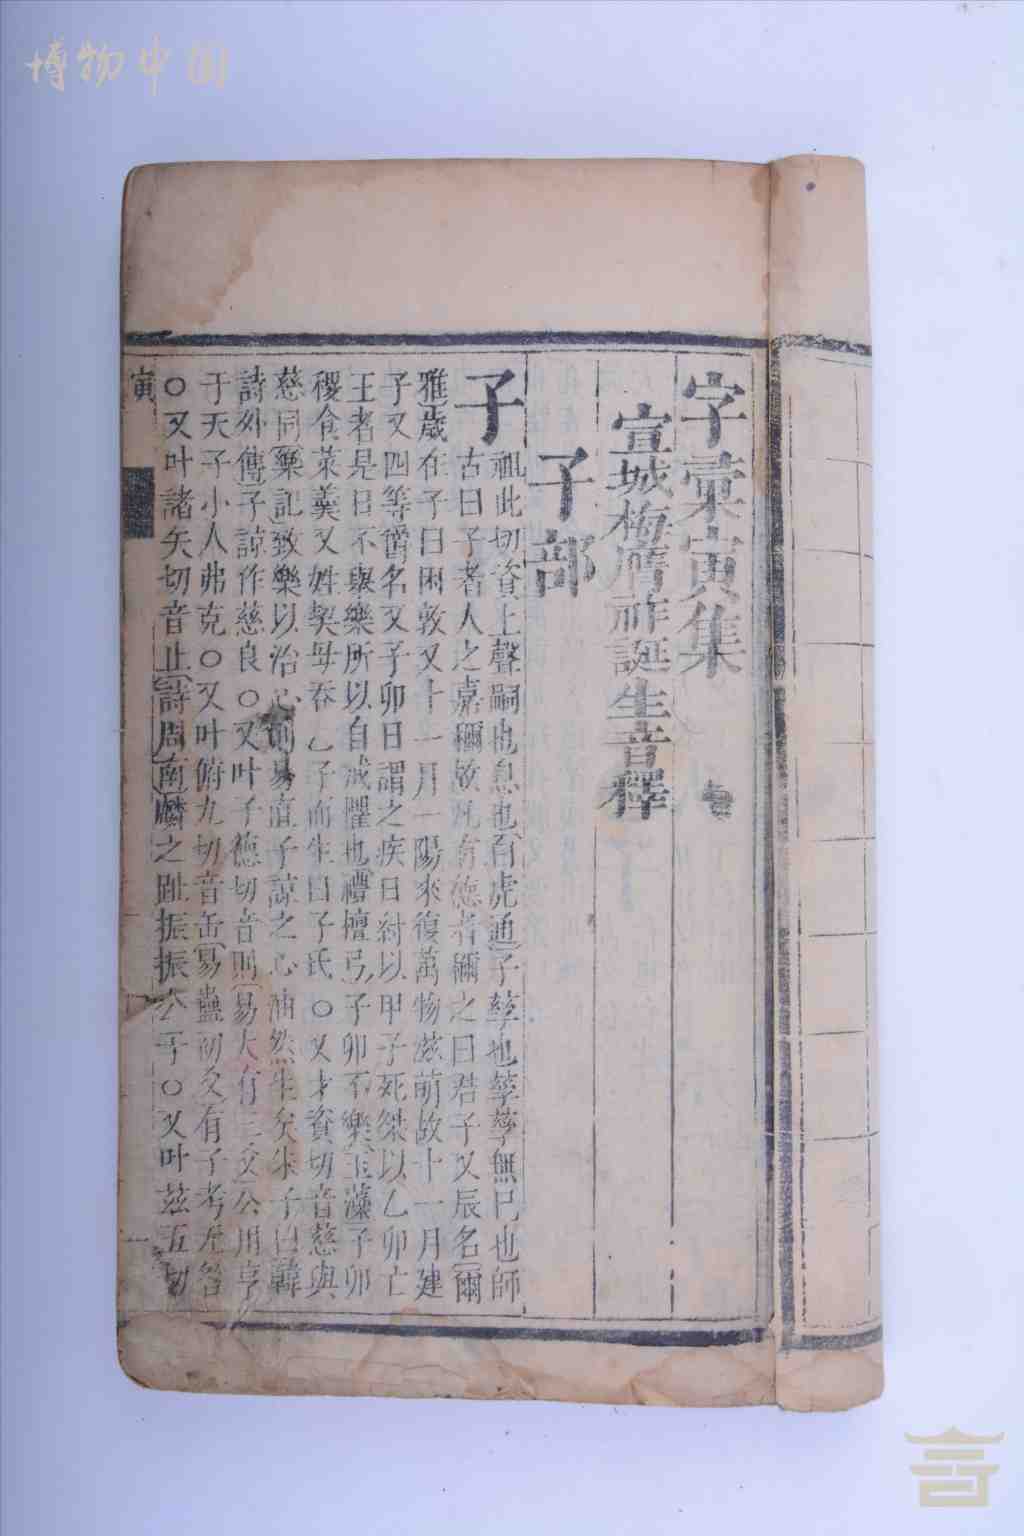 博物中国
字彙寅集
宣城梅膺祚誕生音釋
子部
子
祖此切資上聲嗣也息也白虎通子孳也孳孳無已也師
古曰子者人之嘉稱故凡有德者稱之曰君子又辰名爾
雅歲在子曰困敦又十一月一陽來復萬物茲萌故十一月建
子又四等爵名又子卯日謂之疾日紂以甲子死桀以乙卯亡
王者是日不舉樂所以自戒懼也禮檀弓子卯不樂玉藻子卯
稷食菜羹又姓契母吞乙子而生曰子氏○又才資切音慈與
慈同樂記致樂以治心則易直子諒之心油然生矣朱子曰韓
詩外傳子諒作慈良○又叶子德切音則易大有三爻公用亨
于天子小人弗克○又叶俯九切音缶易蠱初爻有子考无咎
○又叶諸矢切音止詩周南麟之趾振振公子○又叶茲五切
寅